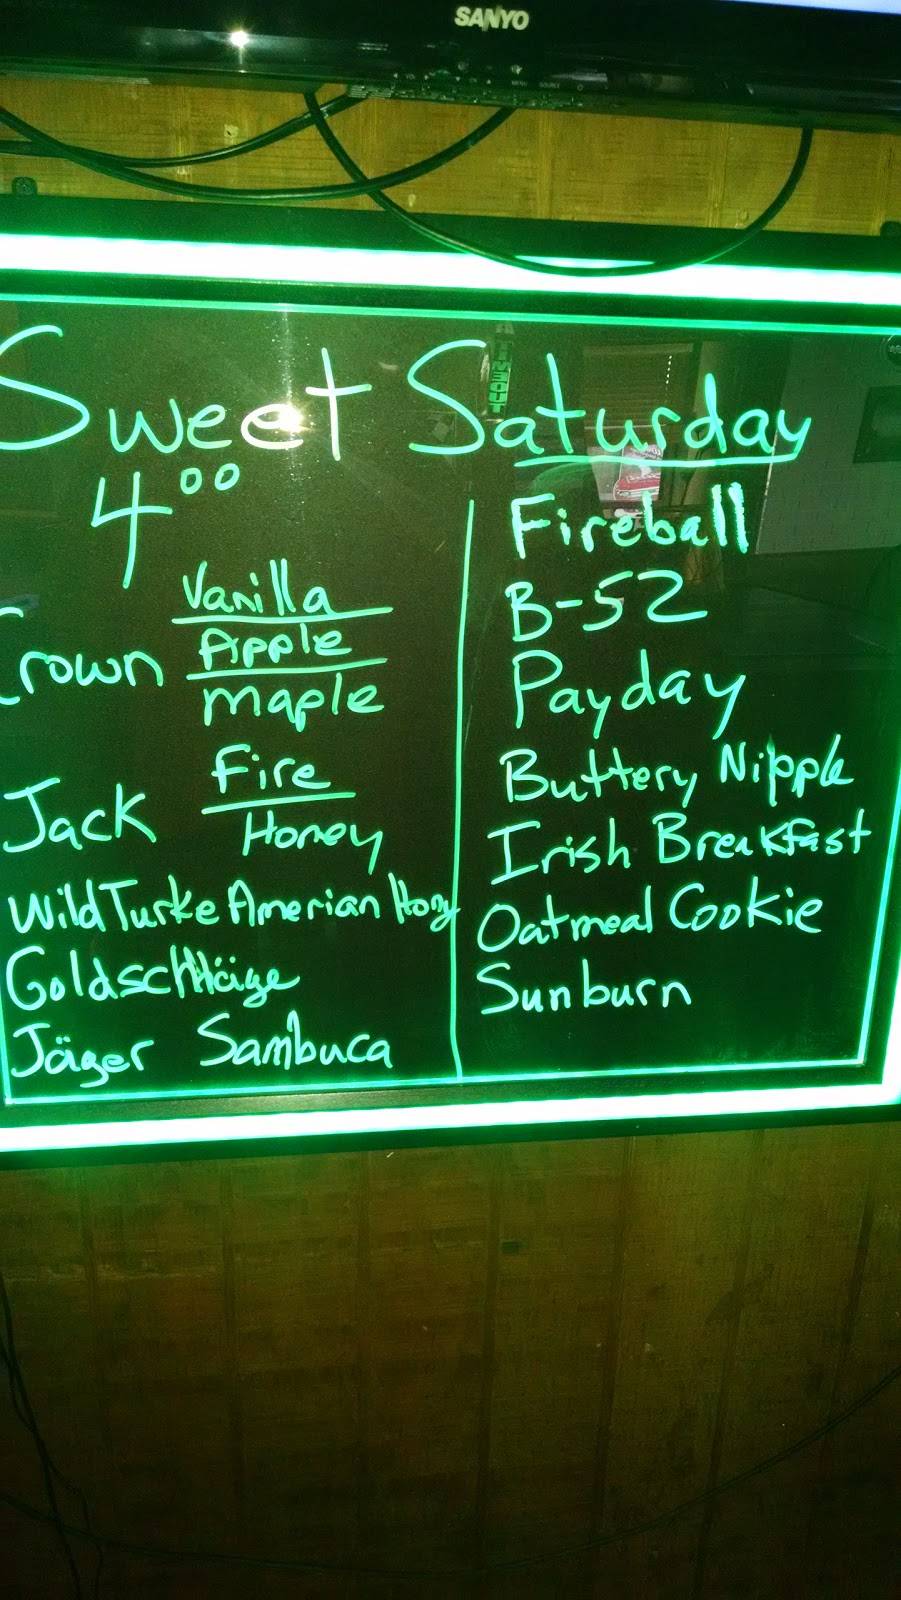 SANYO
MENU SOURCE
Sweet Saturday
4.00
Crown
Vanilla
Apple
Maple
Jack
Fire
Honey
Wild Turke Amerian Hony
Jäger Sambuca
Fireball
B-52
Payday
Buttery Nipple
Irish Breakfast
Oatmeal Cookie
Sunburn